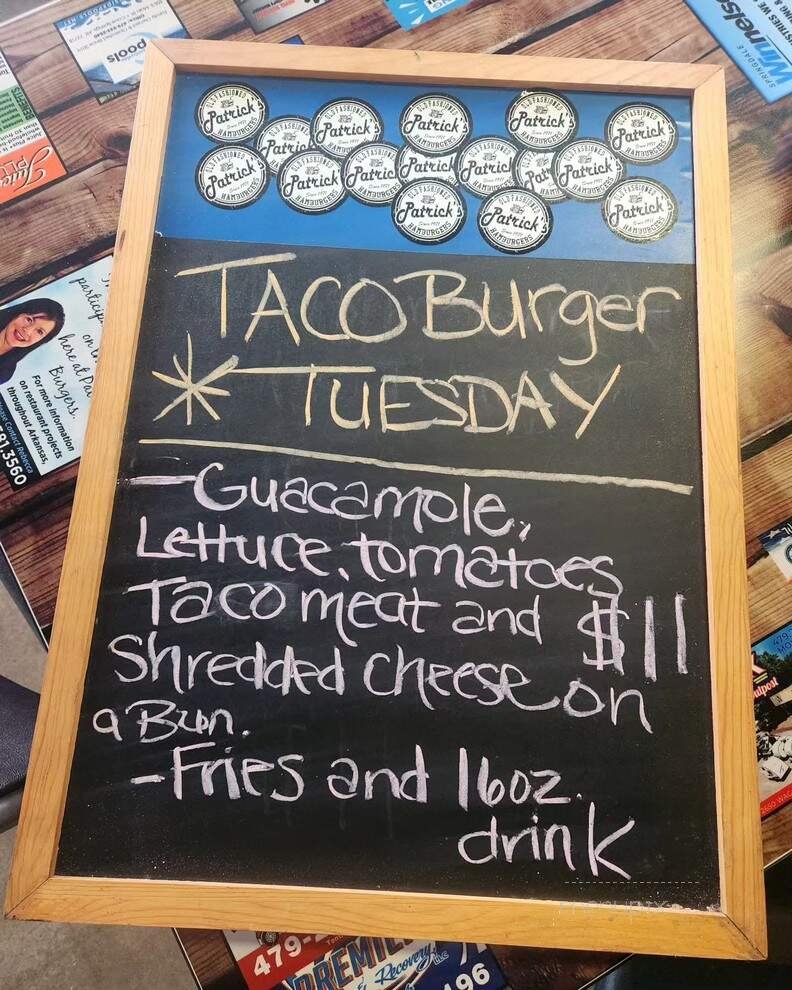 OLD FASHIONED
Patrick's
Since 1971
HAMBURGERS
TACO Burger
* TUESDAY
- Guacamole,
Lettuce, tomatoes
Taco meat and $11
Shredded Cheese on
a Bun.
- Fries and 16oz.
drink
For more information
on restaurant projects
throughout Arkansas,
please Contact Rebecca
here at
Burgers.
SPRINGDALE
pools
479-
PREMIE
Recovery